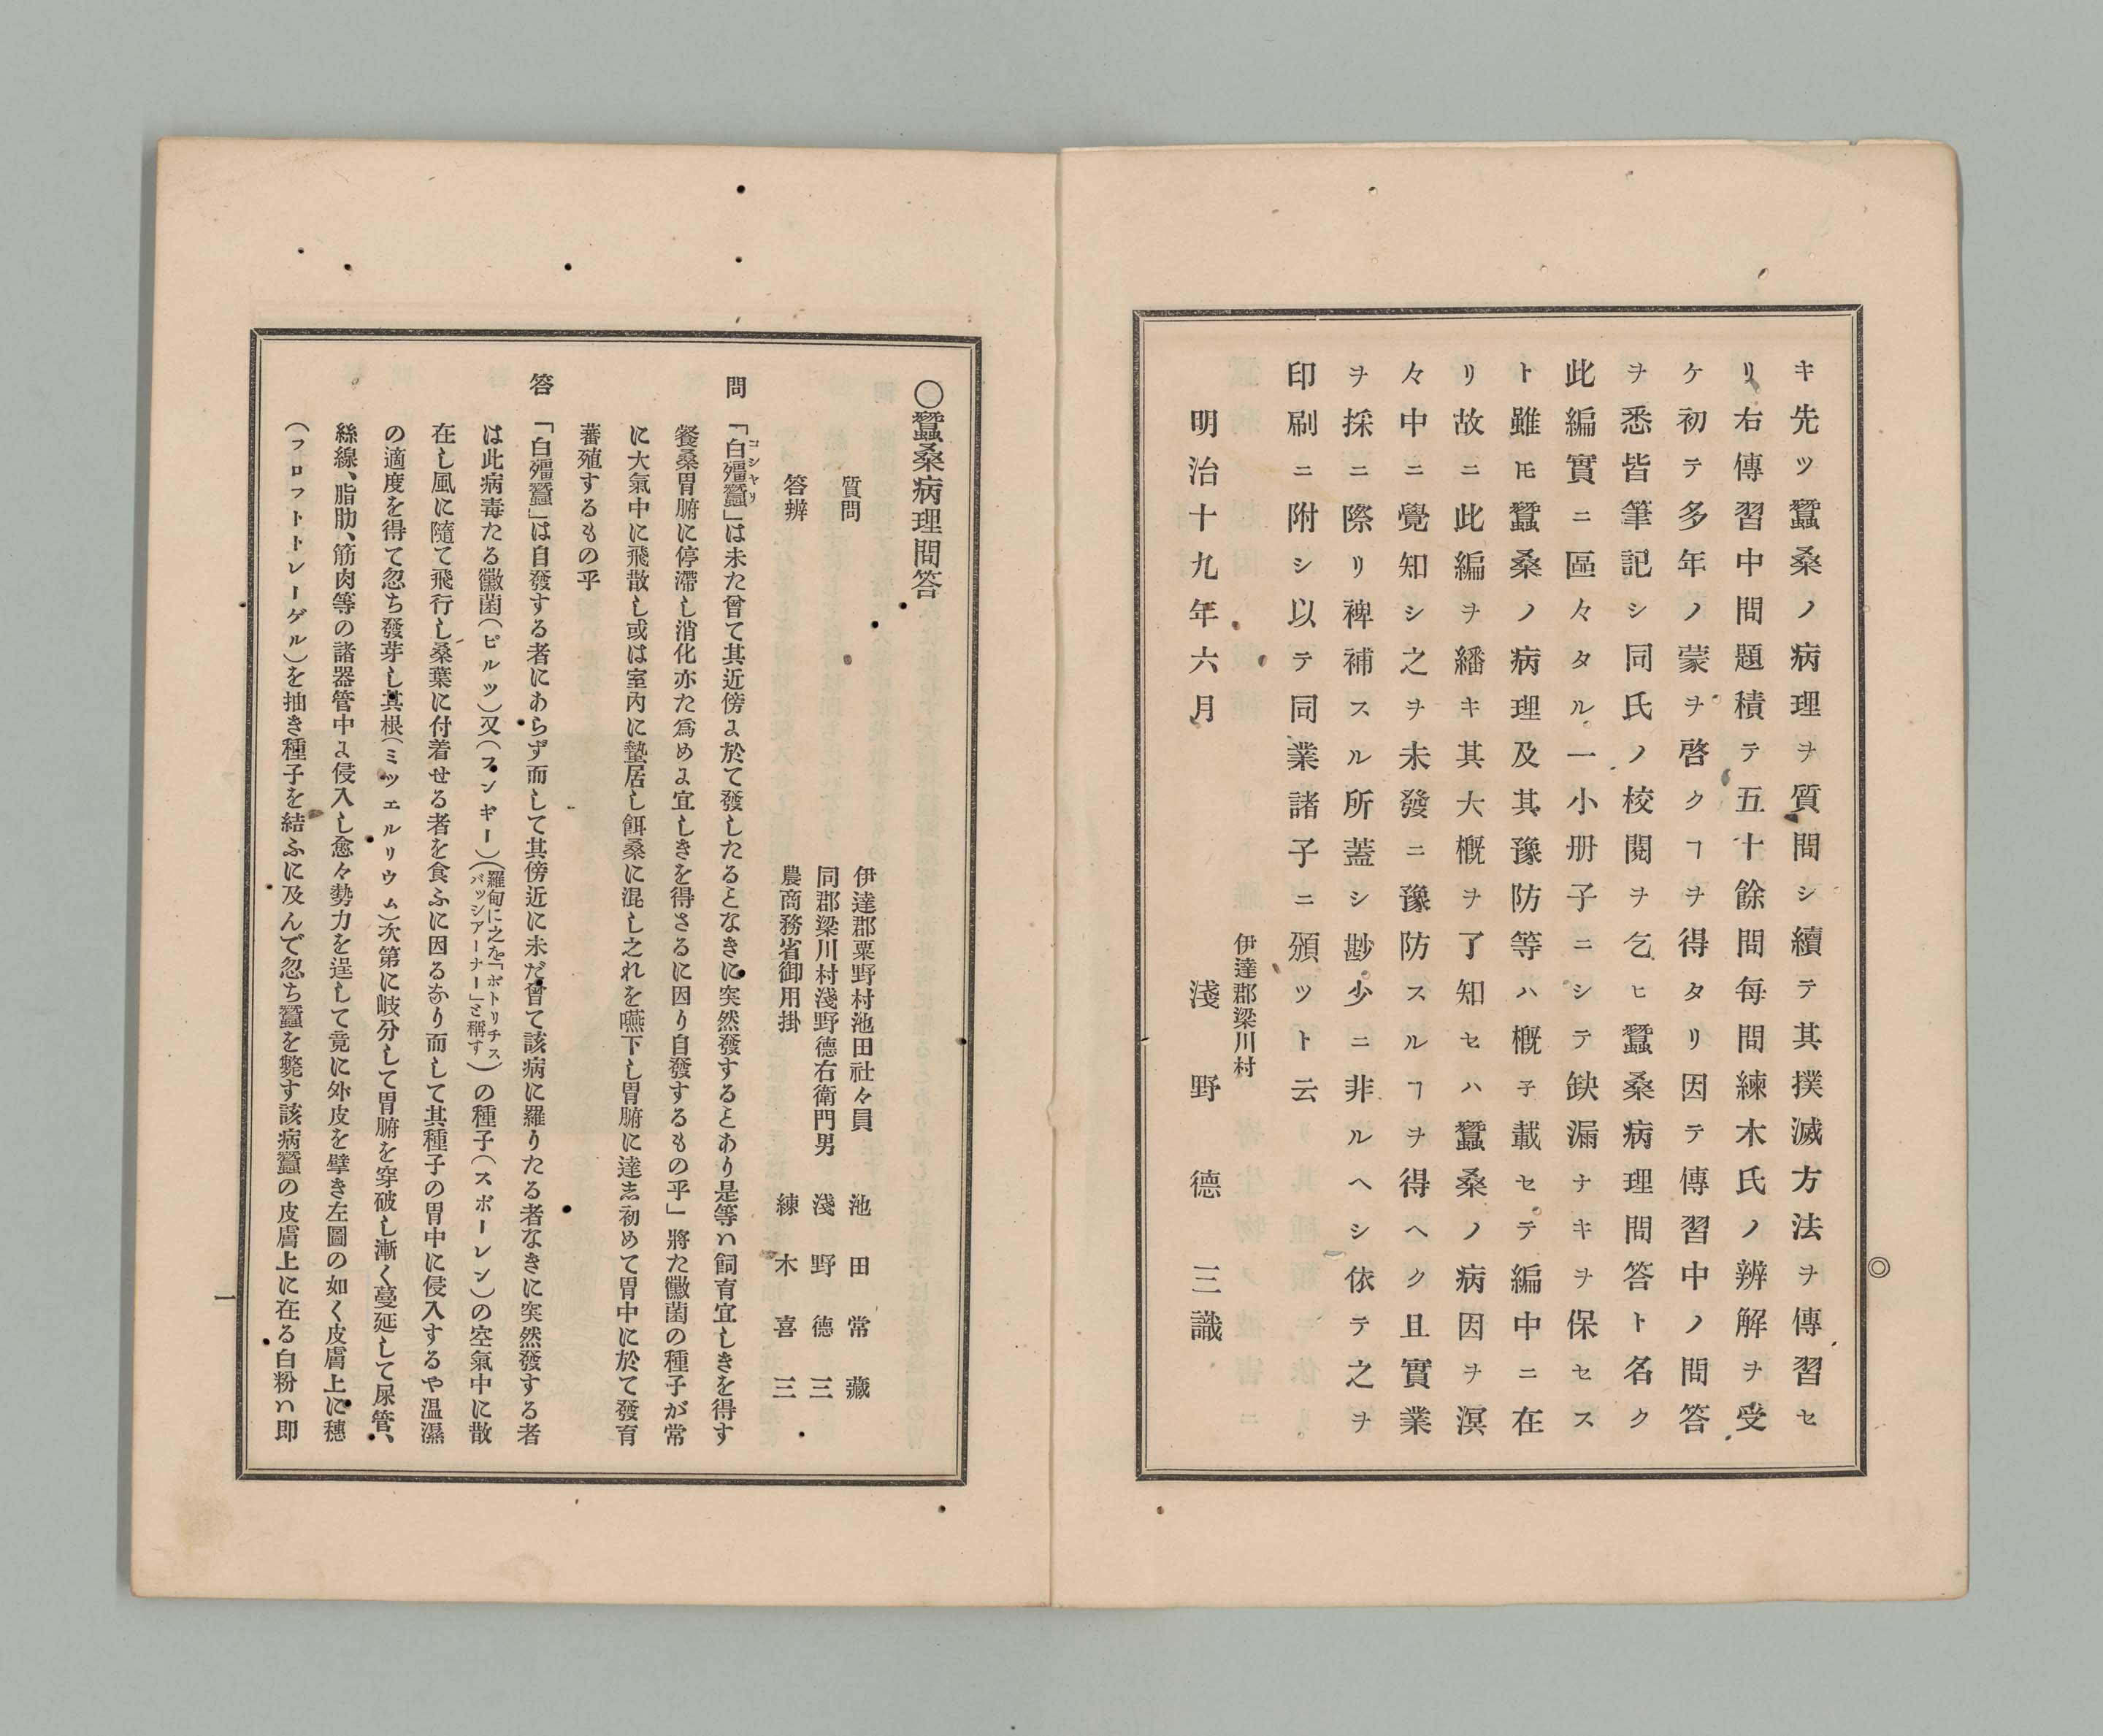 キ先ツ蠶桑ノ病理ヲ質問シ續テ其撲滅方法ヲ傳習セ
リ右傳習中問題積テ五十餘問毎問練木氏ノ辨解ヲ受
ケ初テ多年ノ蒙ヲ啓クヿヲ得タリ因テ傳習中ノ問答
ヲ悉皆筆記シ同氏ノ校閲ヲ乞ヒ蠶桑病理問答ト名ク
此編實ニ區々タル一小册子ニシテ缺漏ナキヲ保セス
ト雖𪜈蠶桑ノ病理及其豫防等ハ概子載セテ編中ニ在
リ故ニ此編ヲ繙キ其大概ヲ了知セハ蠶桑ノ病因ヲ溟
々中ニ覺知シ之ヲ未發ニ豫防スルヿヲ得ヘク且實業
ヲ採ニ際リ裨補スル所蓋シ尠少ニ非ルヘシ依テ之ヲ
印刷ニ附シ以テ同業諸子ニ頒ツト云
伊達郡梁川村
明治十九年六月 淺野德三識
◎
○蠶桑病理問答
質問 伊達郡粟野村池田社々員 池田常藏
同郡梁川村淺野德右衛門男 淺野德三
答辨 農商務省御用掛 練木喜三
問 「白殭蠶」は未た曾て其近傍よ於て發したるとなきに突然發するとあり是等ハ飼育宜しきを得す
コシヤリ
餐桑胃腑に停滯し消化亦た爲めよ宜しきを得さるに因り自發するもの乎」將た黴菌の種子が常
に大氣中に飛散し或は室內に蟄居し餌桑に混し之れを嚥下し胃腑に達志初めて胃中に於て發育
蕃殖するもの乎
答 「白殭蠶」は自發する者にあらず而して其傍近に未だ曾て該病に罹りたる者なきに突然發する者
は此病毒たる黴菌(ピルツ)又(フンギー)(羅甸に之を「ボトリチスバッシアーナー」と稱す)の種子(スポーレン)の空氣中に散
在し風に隨て飛行し桑葉に付着せる者を食ふに因るなり而して其種子の胃中に侵入するや温濕
の適度を得て忽ち發芽し其根(ミツエルリウム)次第に岐分して胃腑を穿破し漸く蔓延して尿管、
絲線、脂肪、筋肉等の諸器管中よ侵入し愈々勢力を逞して竟に外皮を擘き左圖の如く皮膚上に穗
(フロフトトレーゲル)を抽き種子を結ふに及んで忽ち蠶を斃す該病蠶の皮膚上に在る白粉ハ即
一